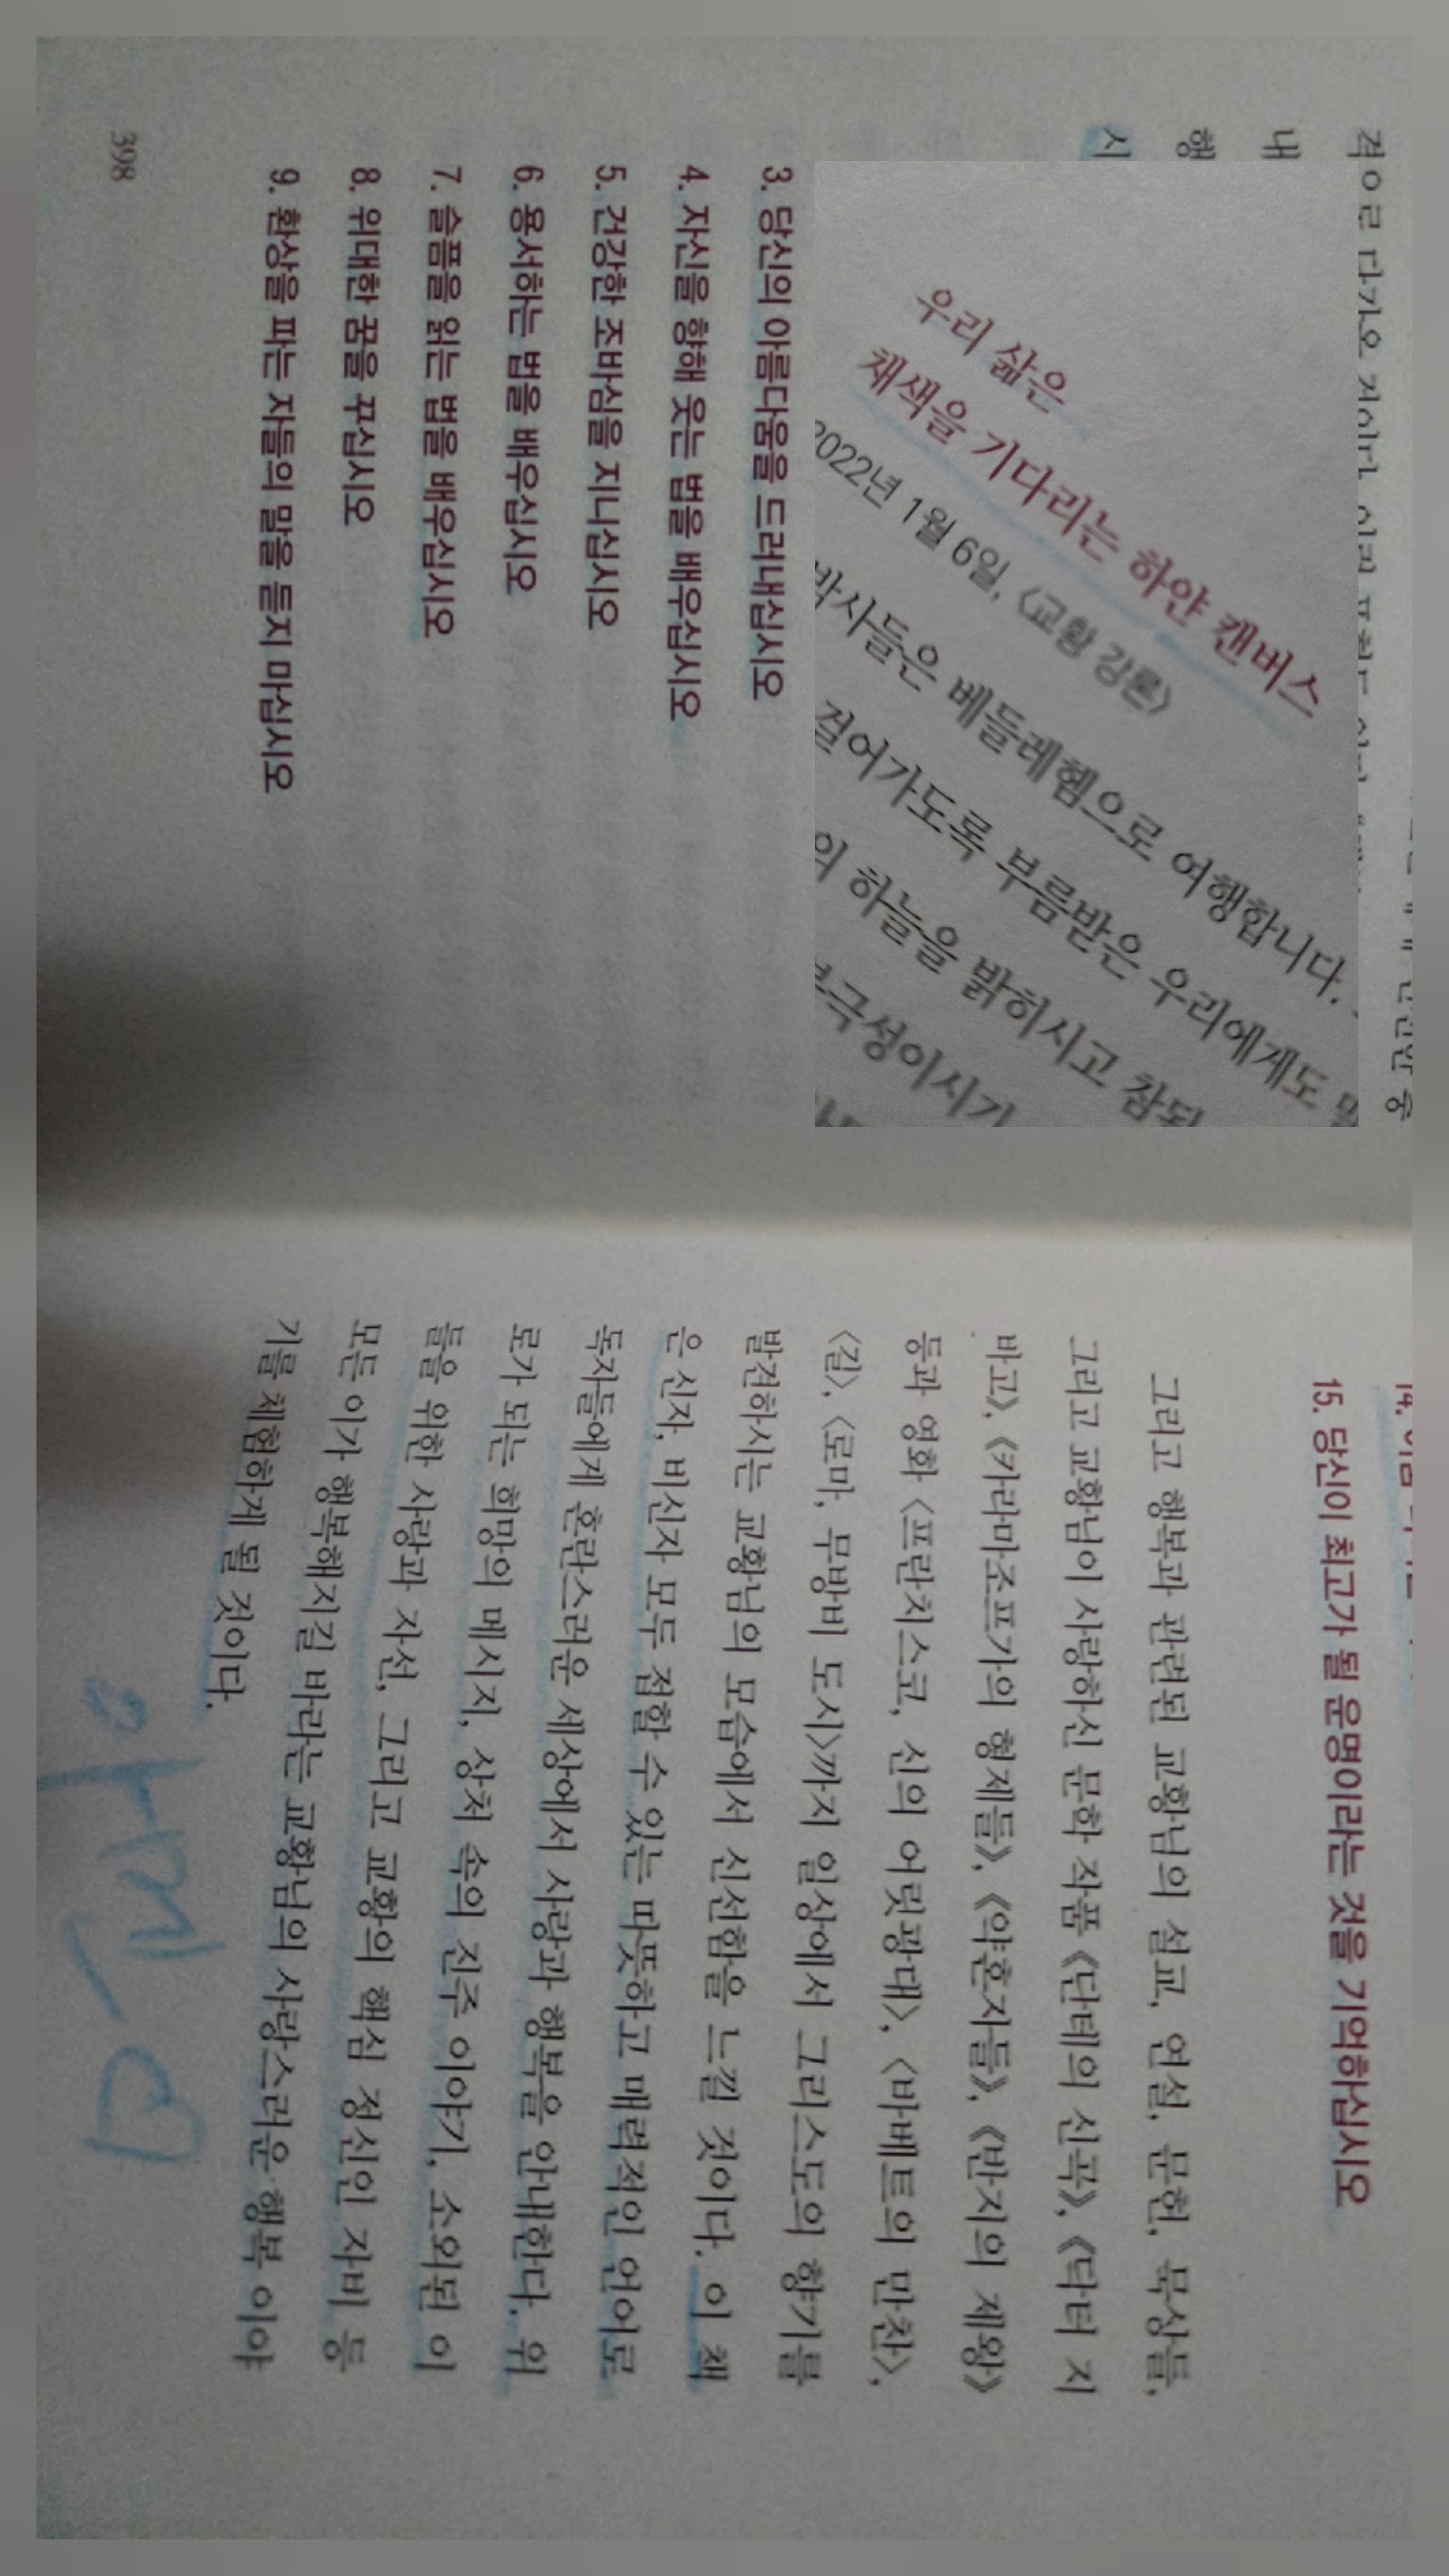 격으로
내
행
시
3. 당신의 아름다움을 드러내십시오
4. 자신을 향해 웃는 법을 배우십시오
5. 건강한 조바심을 지니십시오
6. 용서하는 법을 배우십시오
7. 슬픔을 읽는 법을 배우십시오
8. 위대한 꿈을 꾸십시오
9. 환상을 파는 자들의 말을 듣지 마십시오
398
우리 삶은
채색을 기다리는 하얀 캔버스
2022년 1월 6일, 〈교황 강론〉
박사들은 베들레헴으로 여행합니다.
걸어가도록 부름받은 우리에게도
의 하늘을 밝히시고 참된
15. 당신이 최고가 될 운명이라는 것을 기억하십시오
그리고 행복과 관련된 교황님의 설교, 연설, 문헌, 묵상들,
그리고 교황님이 사랑하신 문학 작품 《단테의 신곡》, 《닥터 지
바고》, 《카라마조프가의 형제들》, 《약혼자들》, 《반지의 제왕》
등과 영화 〈프란치스코, 신의 어릿광대〉, 〈바베트의 만찬〉,
〈길〉, 〈로마, 무방비 도시〉까지 일상에서 그리스도의 향기를
발견하시는 교황님의 모습에서 신선함을 느낄 것이다. 이 책
은 신자, 비신자 모두 접할 수 있는 따뜻하고 매력적인 언어로
독자들에게 혼란스러운 세상에서 사랑과 행복을 안내한다. 위
로가 되는 희망의 메시지, 상처 속의 진주 이야기, 소외된 이
들을 위한 사랑과 자선, 그리고 교황의 핵심 정신인 자비 등
모든 이가 행복해지길 바라는 교황님의 사랑스러운 행복 이야
기를 체험하게 될 것이다.
아멘